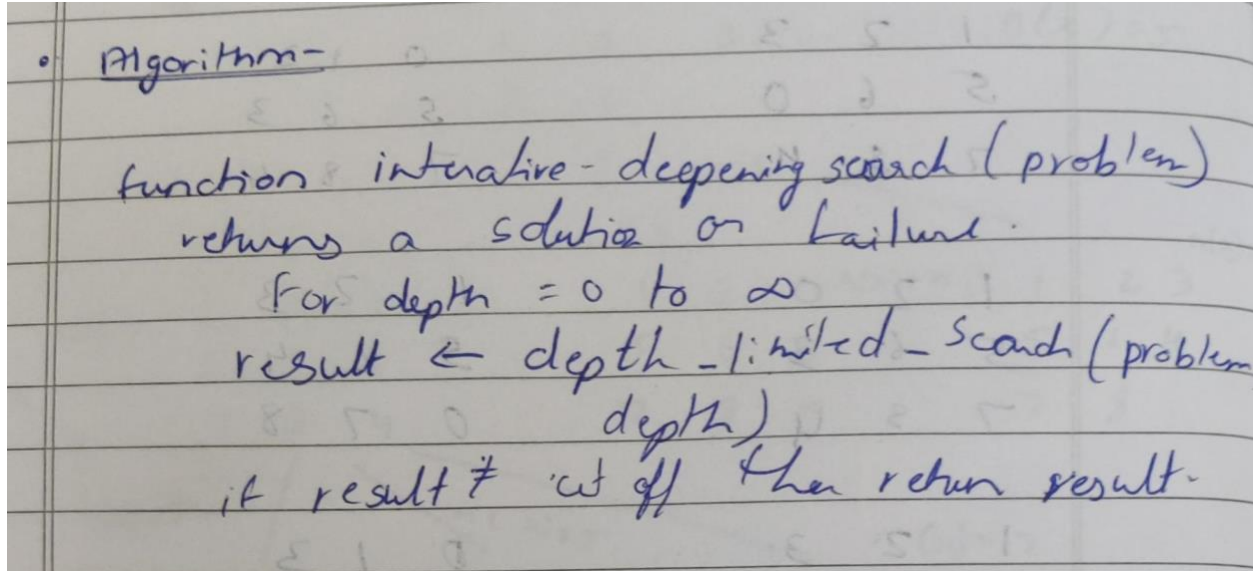 • Algorithm-
function interative - deepening search ( problem )
returns a solution or failure.
For depth = 0 to ∞
result ← depth _ limited _ Search ( problem
depth )
if result ≠ cut off then return result.